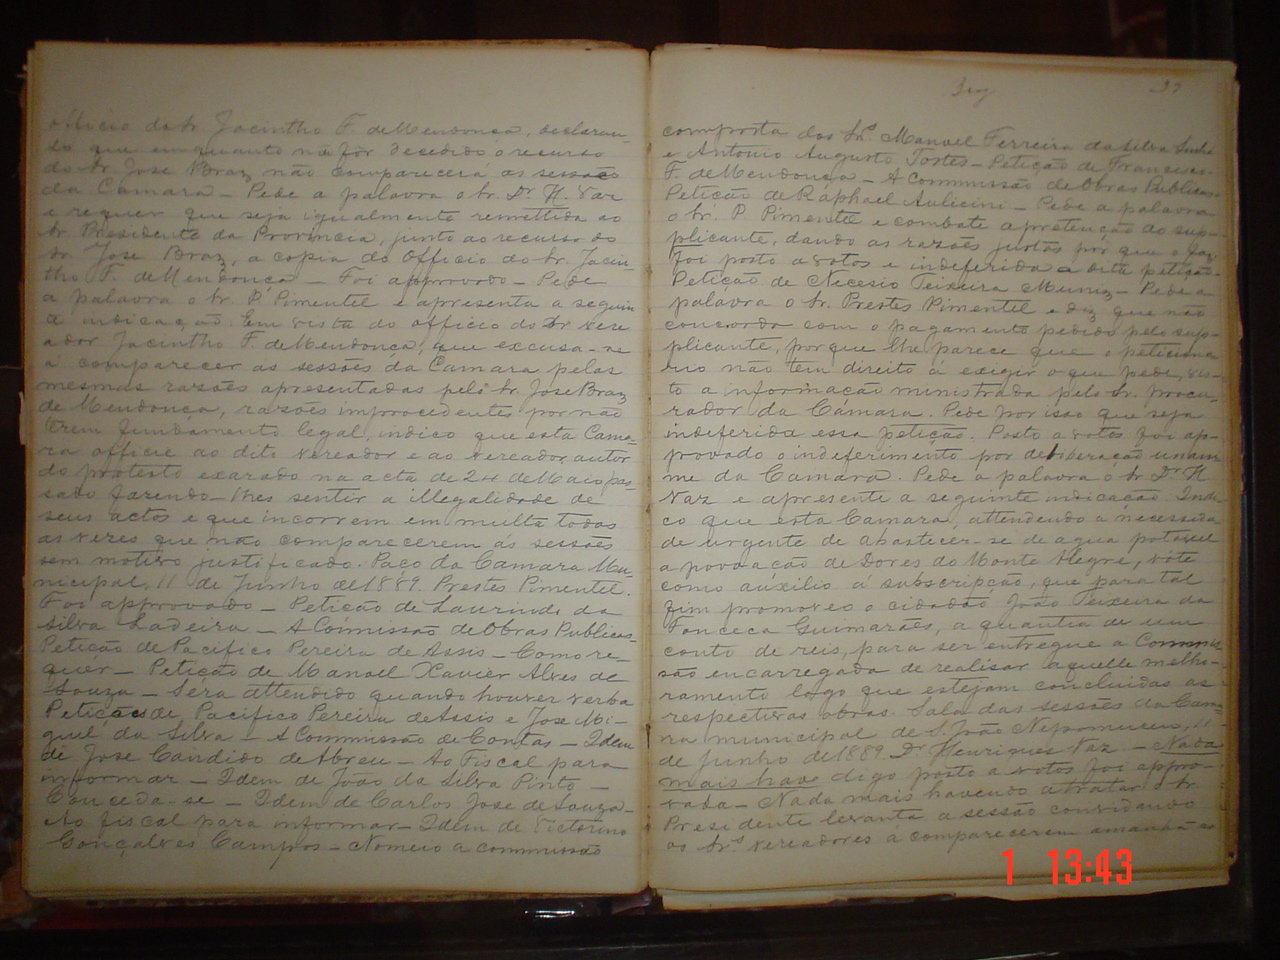 officio do Sr. Jacintho F. de Mendonça, declaran-
do que emquanto não fôr decedido o recurso
do Sr. José Braz não comparecerá as sessão
da Camara – Pede a palavra o Sr. Dr. H. Vaz
e requer que seja igualmente remettida ao
Sr. Presidente da Provincia, junto ao recurso do
Sr. José Braz, a copia do Officio do Sr. Jacin-
tho F. de Mendonça – Foi approvado – Pede
a palavra o Sr. P. Pimentel e apresenta a seguin
a indicação. Em vista do officio do Dr Vere
ador Jacintho F. de Mendonça, que excusa-se
a comparecer as sessões da Camara pelas
mesmas razões apresentadas pelo Sr. José Braz
de Mendonça, razões improcedentes por não
terem fundamento legal, indico que esta Cama-
ra officie ao dito vereador e ao vereador autor
do protesto exarado na acta de 24 de Maio pas
sado fazendo-lhes sentir a illegalidade de
seus actos e que incorrem em multa todas
as vezes que não comparecerem ás sessões
sem motivo justificado. Paço da Camara Mu-
nicipal, 11 de Junho de 1889. Prestes Pimentel.
Foi approvado – Petição de Laurindo da
Silva Ladeira – A Comissão de Obras Publicas
Petição de Pacifico Pereira de Assis – Como re-
quer – Petição de Manoel Xavier Alves de
Souza – Sera attendido quando houver verba
Petição de Pacifico Pereira de Assis e José Mi-
guel da Silva – A Commissão de Contas – Idem
de José Candido de Abreu – Ao Fiscal para
informar – Idem de João da Silva Pinto –
Conceda-se – Idem de Carlos José de Souza-
Ao fiscal para informar – Idem de Victorino
Gonçalves Campos – Nomeio a commissão
33
composta dos Srs. Manoel Ferreira da Silva
e Antonio Augusto Tortes – Petição de Francisco
F. de Mendonça – A Commissão de Obras Publicas-
Petição de Raphael Aulicini – Pede a palavra
o Sr. P. Pimentel e combate a pretenção do sup-
plicante, dando as razões justas por que o faz.
Foi posto a votos e indeferida a dita petição-
Petição de Nicesio Teixeira Muniz – Pede a
palavra o Sr. Prestes Pimentel e diz que não
concorda com o pagamento pedido pelo sup-
plicante, porque lhe parece que o peticiona
rio não tem direito a exigir o que pede, vis-
to a informação ministrada pelo Sr. procu-
rador da Camara. Pede por isso que seja
indeferida essa petição. Posto a votos foi ap-
provado o indeferimento por deliberação unani
me da Camara. Pede a palavra o Sr Dr. H.
Vaz e apresenta a seguinte indicação Indi-
co que esta Camara, attendendo a necessida
de urgente de abastecer-se de agua potavel
a povoação de Dores do Monte Alegre, vote
como auxilio á subscripção, que para tal
fim promoveo o cidadão João Teixeira da
Fonceca Guimarães, a quantia de um
conto de reis, para ser entregue a Commis
são encarregada de realisar aquelle melho-
ramento logo que estejam concluidas as
respectivas obras. Sala das sessões da Cama
ra municipal de S. João Nepomuceno, 11
de junho de 1889. Dr. Henrique Vaz. – Nada
mais have digo posto a votos foi appro-
vada – Nada mais havendo a tratar o Sr.
Presidente levanta a sessão convidando
os Srs. vereadores á comparecerem amanhã as
1 13:43